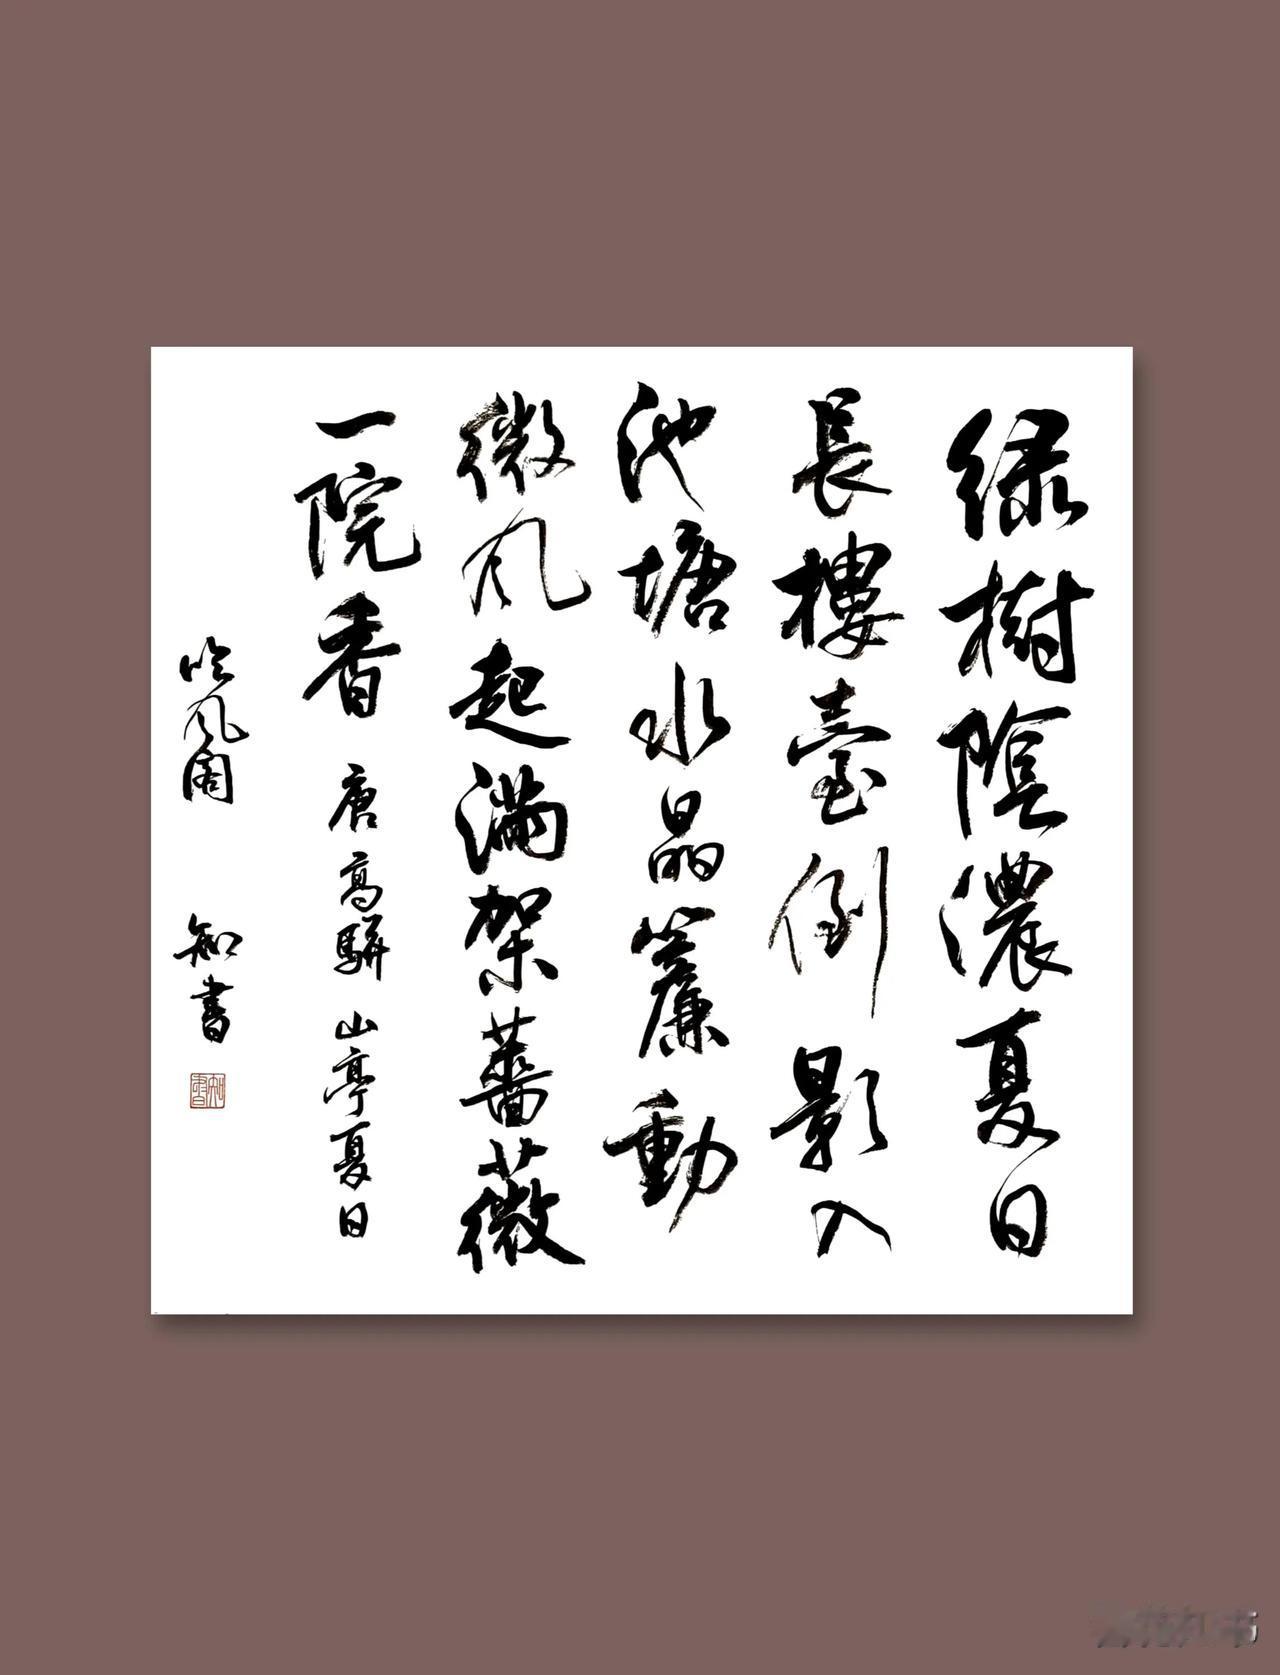 绿樹陰濃夏日
長樓臺倒影入
池塘水晶簾動
微风起满架薔薇
一院香 唐高駢山亭夏日
吟风阁 知書